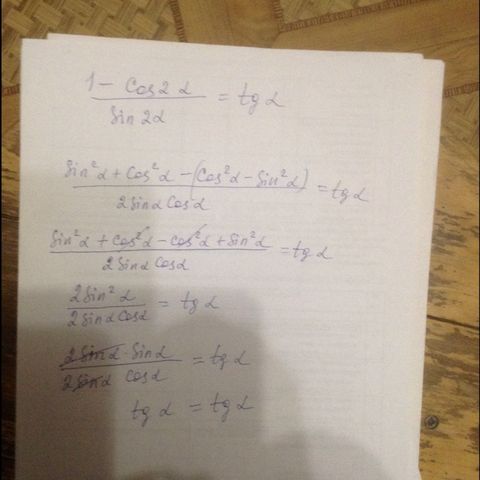 1 - cos2α / sin2α = tgα
sin²α + cos²α - (cos²α - sin²α) / 2sinα cosα = tgα
sin²α + cos²α - cos²α + sin²α / 2sinα cosα = tgα
2sin²α / 2sinα cosα = tgα
2sinα · sinα / 2sinα cosα = tgα
tgα = tgα